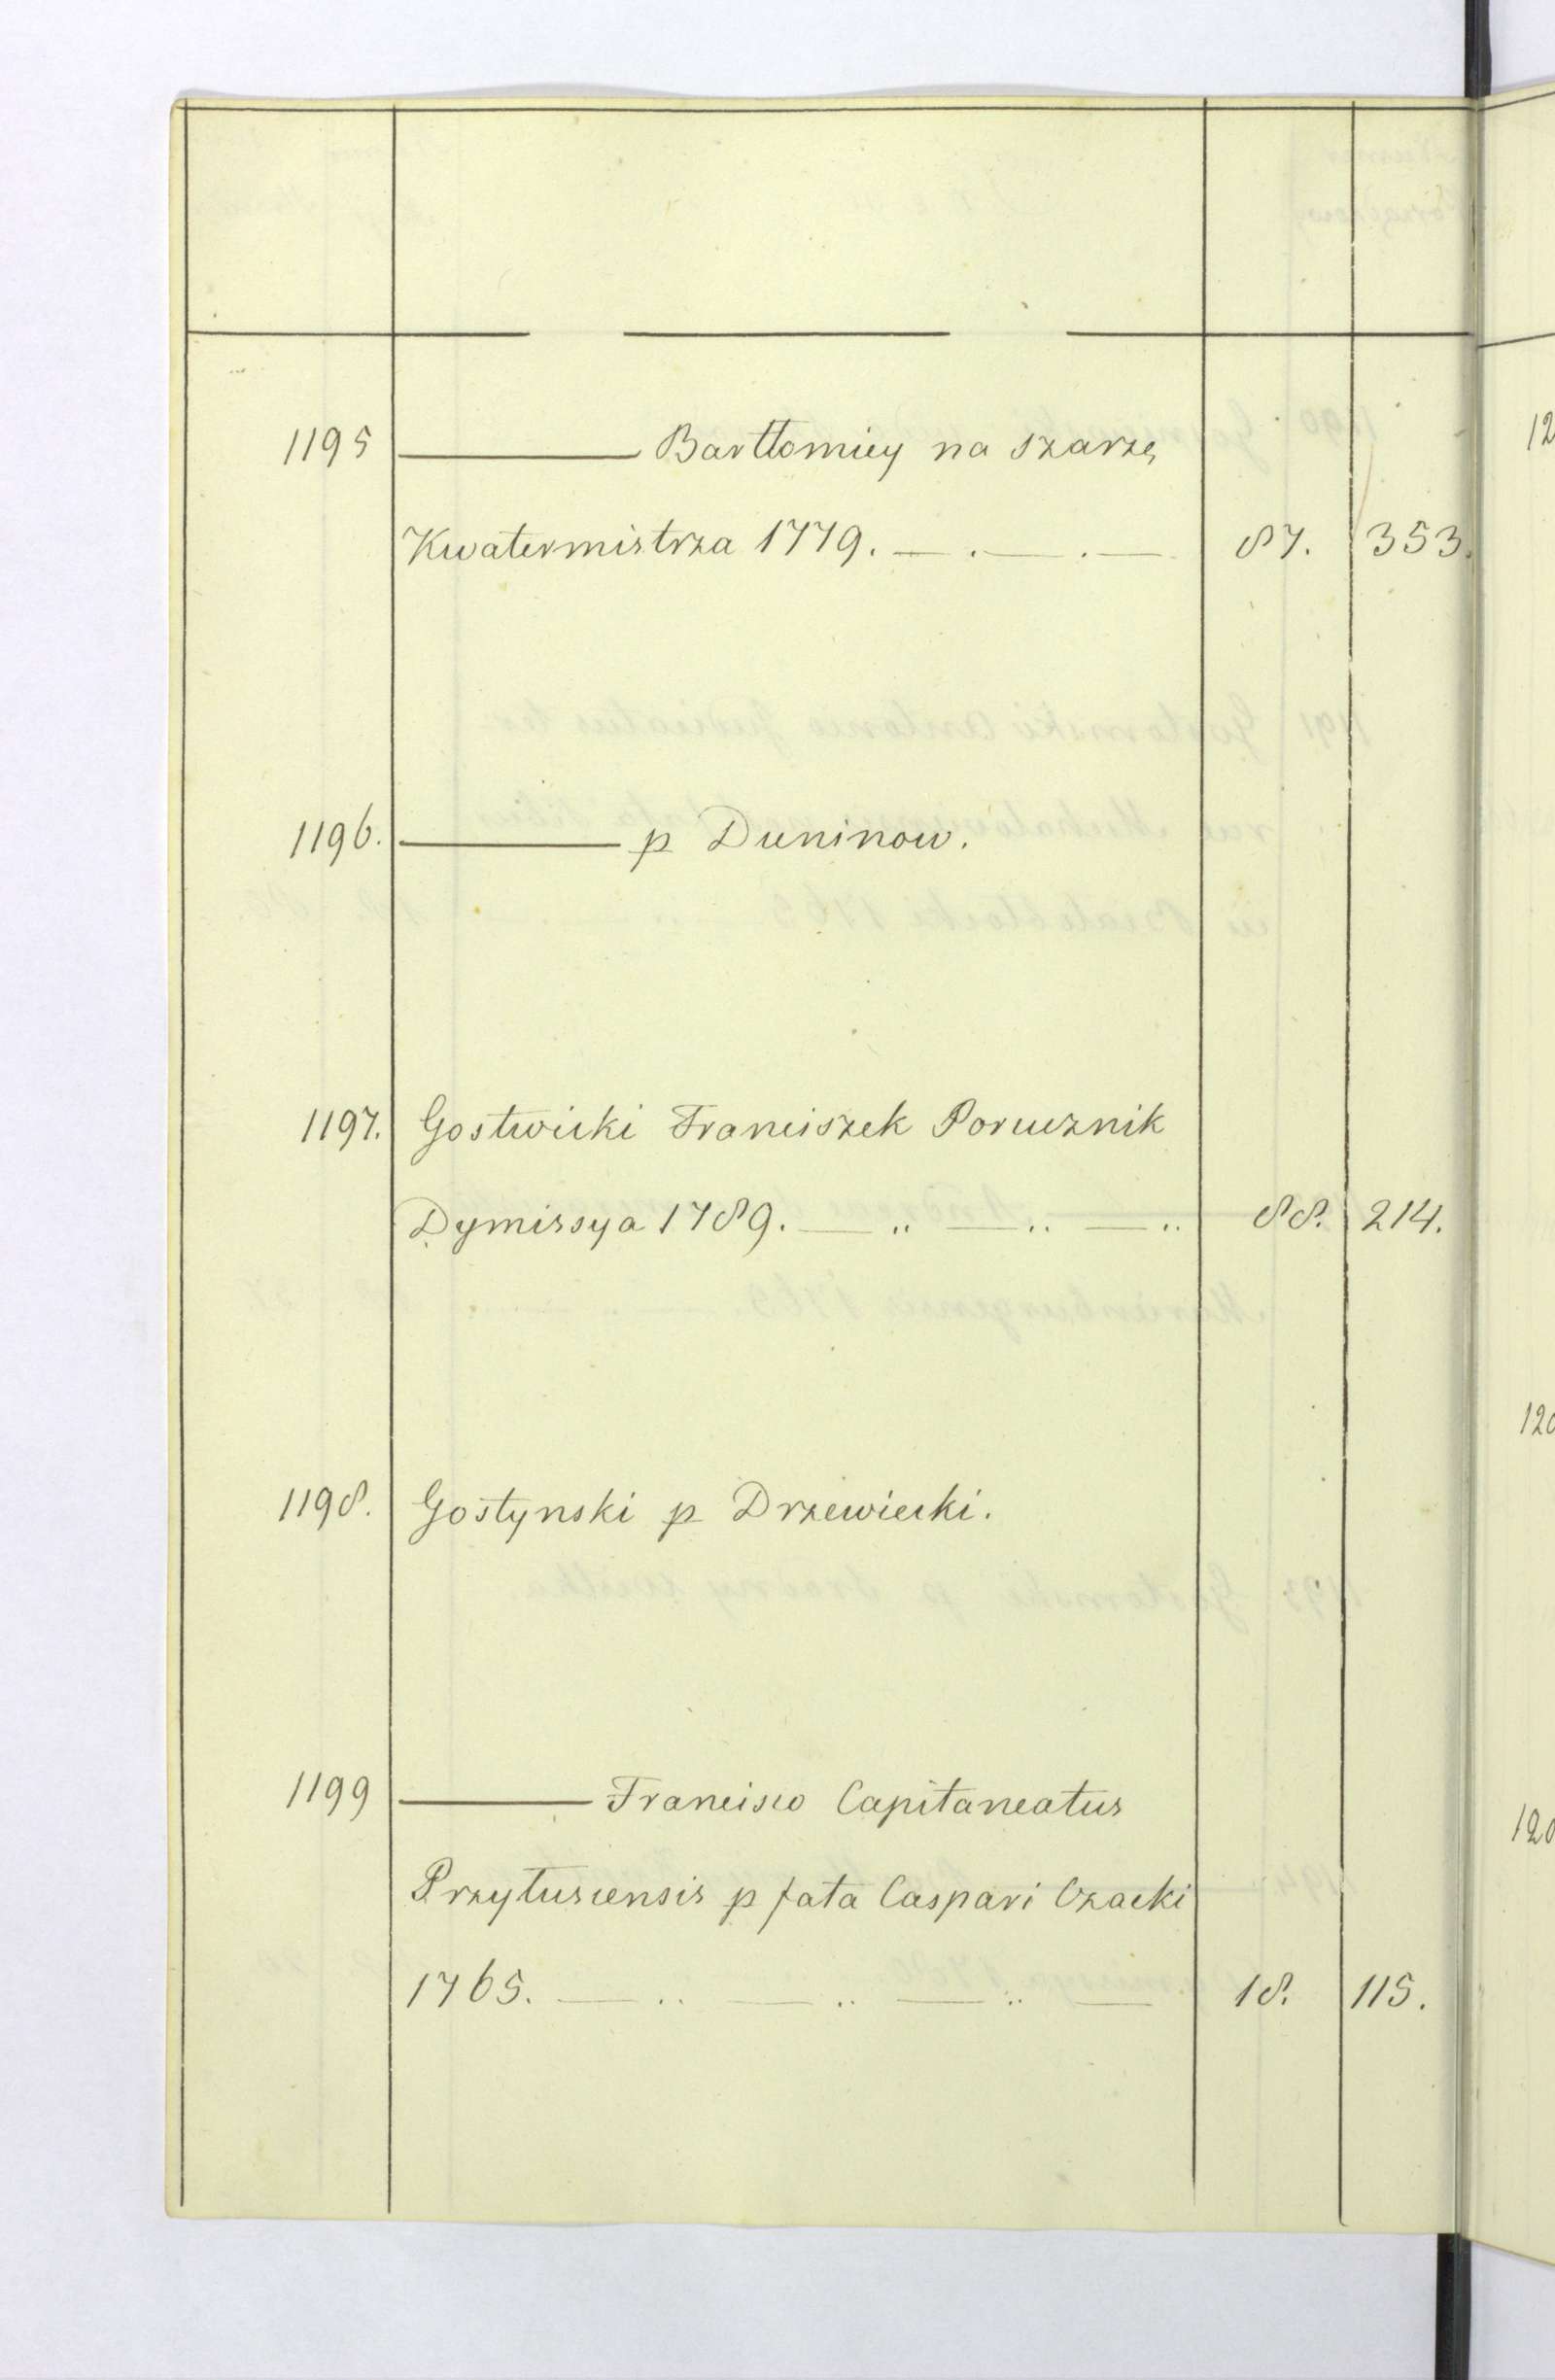 1195 ——— Bartłomiey na szarzę
Kwatermistrza 1779. — . — . — 87. 353.
1196. ——— p Duninow.
1197. Gostwicki Franciszek Porucznik
Dymissya 1789. — .. — .. — .. 88. 214.
1198. Gostynski p Drzewiecki.
1199 ——— Francisco Capitaneatus
Przytuscensis p fata Caspari Czacki
1765. — .. — .. — .. — 18. 115.